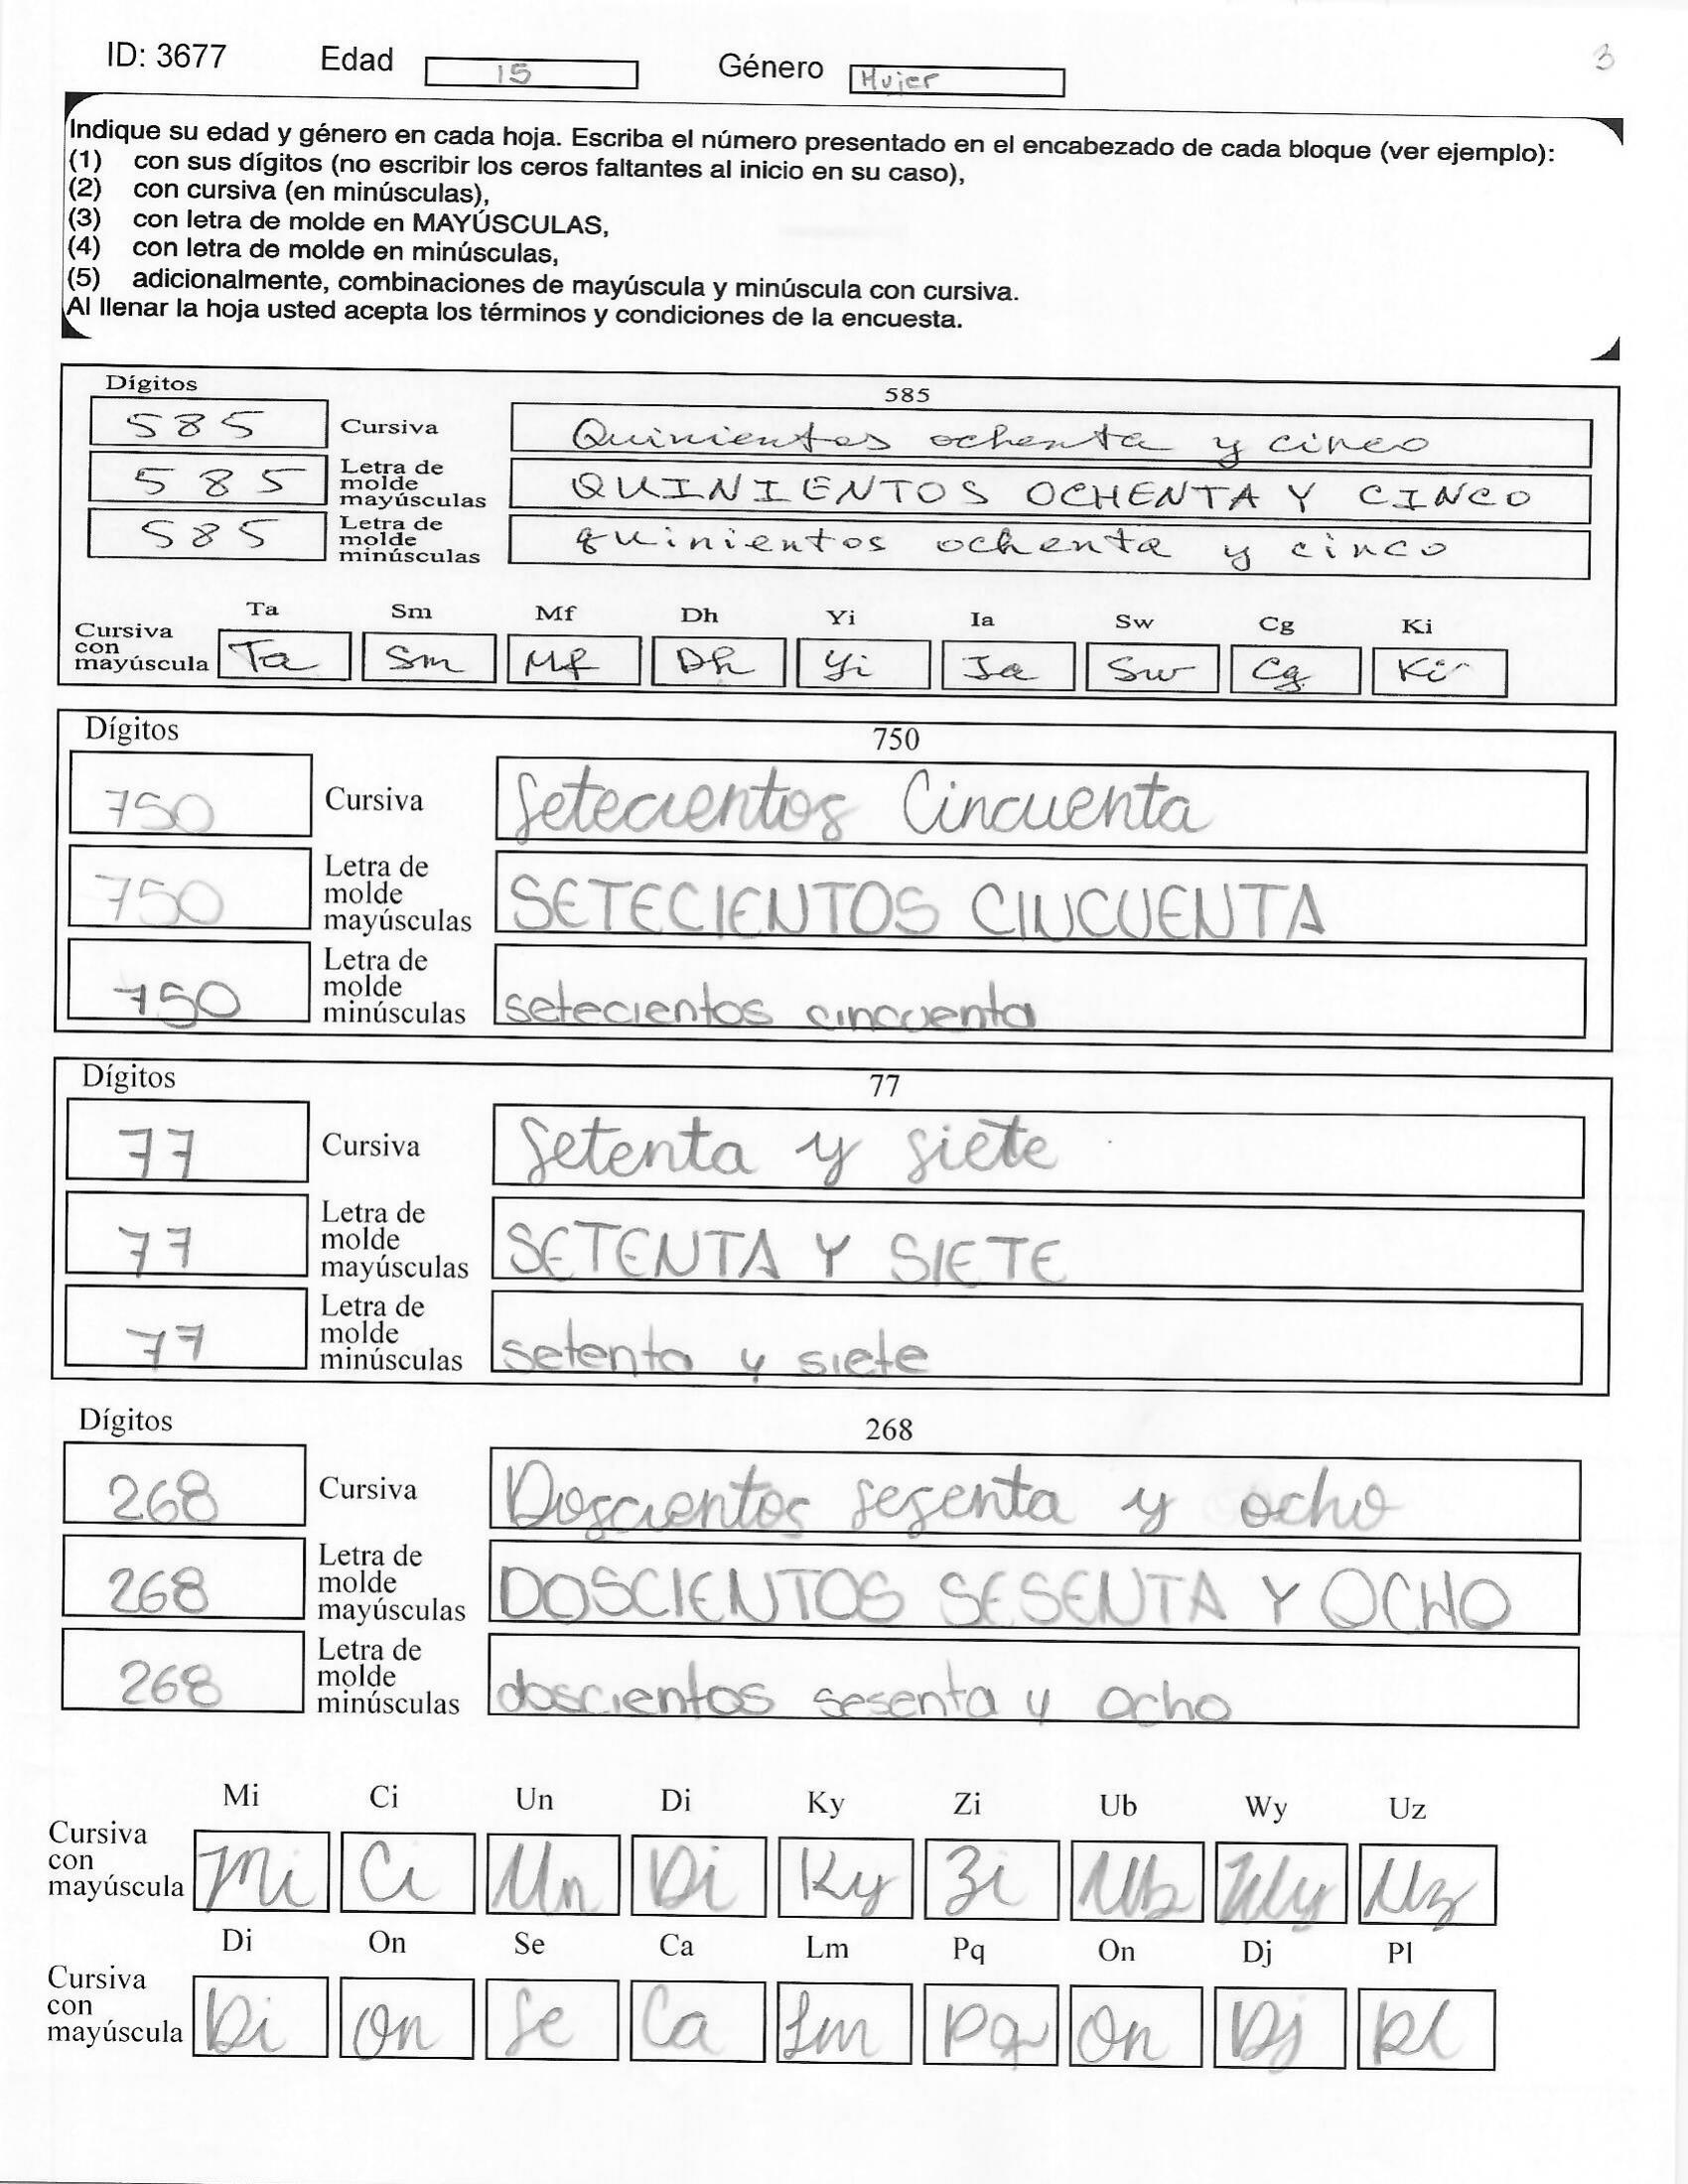 ID: 3677 Edad 15 Género Mujer 3
Indique su edad y género en cada hoja. Escriba el número presentado en el encabezado de cada bloque (ver ejemplo):
(1) con sus dígitos (no escribir los ceros faltantes al inicio en su caso),
(2) con cursiva (en minúsculas),
(3) con letra de molde en MAYÚSCULAS,
(4) con letra de molde en minúsculas,
(5) adicionalmente, combinaciones de mayúscula y minúscula con cursiva.
Al llenar la hoja usted acepta los términos y condiciones de la encuesta.
Dígitos 585
585 Cursiva Quinientos ochenta y cinco
585 Letra de molde mayúsculas QUINIENTOS OCHENTA Y CINCO
585 Letra de molde minúsculas quinientos ochenta y cinco
Ta Sm Mf Dh Yi Ia Sw Cg Ki
Cursiva con mayúscula Ta Sm Mf Dh Yi Ia Sw Cg Ki
Dígitos 750
750 Cursiva Setecientos Cincuenta
750 Letra de molde mayúsculas SETECIENTOS CINCUENTA
750 Letra de molde minúsculas setecientos cincuenta
Dígitos 77
77 Cursiva Setenta y siete
77 Letra de molde mayúsculas SETENTA Y SIETE
77 Letra de molde minúsculas setenta y siete
Dígitos 268
268 Cursiva Doscientos sesenta y ocho
268 Letra de molde mayúsculas DOSCIENTOS SESENTA Y OCHO
268 Letra de molde minúsculas doscientos sesenta y ocho
Mi Ci Un Di Ky Zi Ub Wy Uz
Cursiva con mayúscula Mi Ci Un Di Ky Zi Ub Wy Uz
Di On Se Ca Lm Pq On Dj Pl
Cursiva con mayúscula Di On Se Ca Lm Pq On Dj Pl